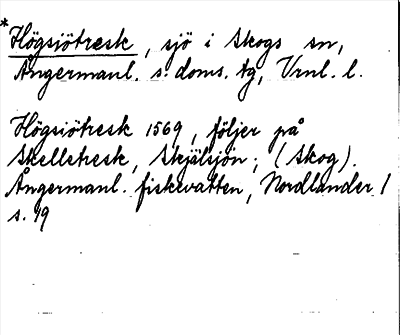 *Högsjötresk, sjö i Skogs sn,
Ångermanl. s. doms. tg, Vrnl. l.
Högsiötresk 1569, följer på
Skelletresk, Skjälsjön; (Skog).
Ångermanl. fiskevatten, Nordlander 1
s. 19